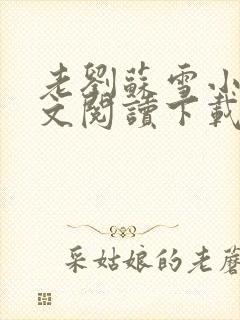 老劉蘇雪小
文閱讀下載
采姑娘的老蘑